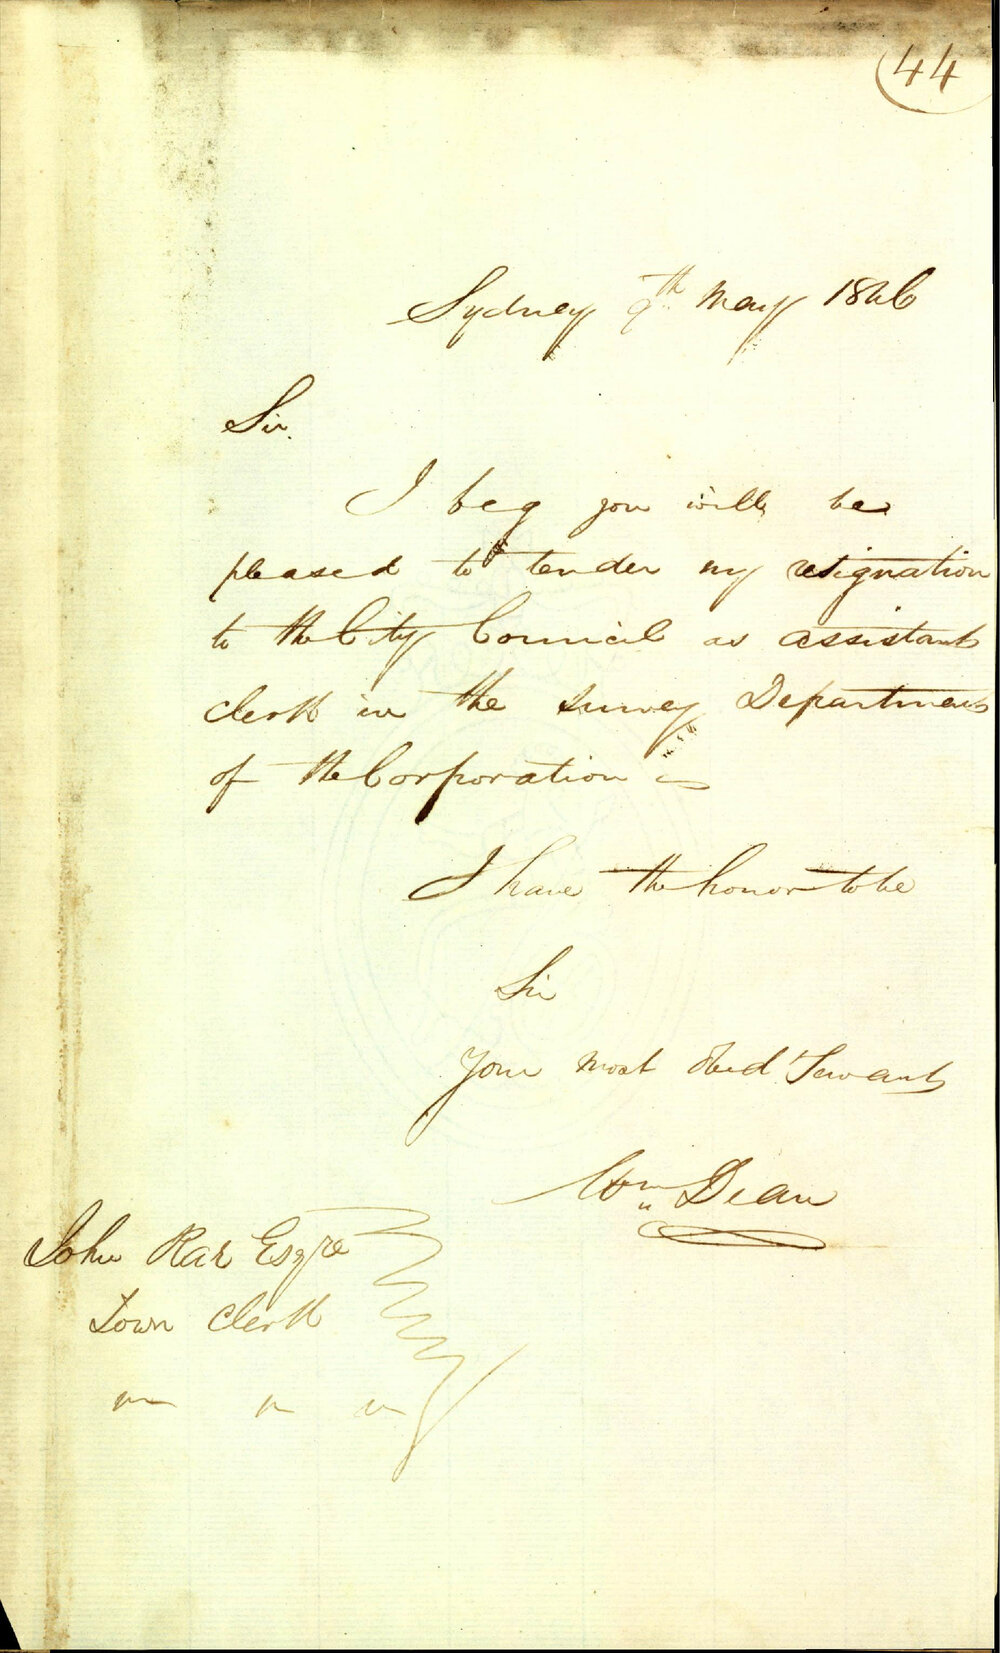 44
Sydney 9th May 1846
Sir
I beg you will be
pleased to tender my resignation
to the City Council as assistant
clerk in the Survey Department
of the Corporation
I have the honor to be
Sir
Your most Obed Servant
Wm Dean
John Rae Esqre
Town Clerk